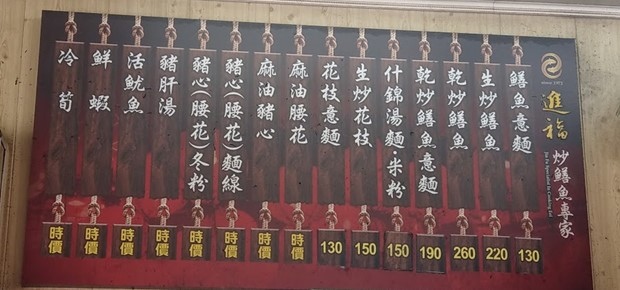 進福
炒鱔魚專家
鱔魚意麵
130
生炒鱔魚
220
乾炒鱔魚
260
乾炒鱔魚意麵
190
什錦湯麵·米粉
150
生炒花枝
150
花枝意麵
130
麻油腰花
時價
麻油豬心
時價
豬心(腰花)麵線
時價
豬心(腰花)冬粉
時價
豬肝湯
時價
活魷魚
時價
鮮蝦
時價
冷筍
時價